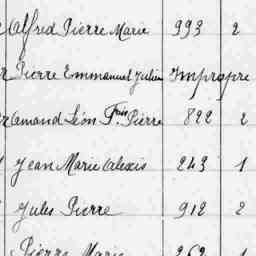 Alfred Pierre Marie 993 2
Pierre Emmanuel Julien Impropre
Amand Léon Fçois Pierre 822 2
Jean Marie Alexis 243 1
Jules Pierre 912 2
Pierre Marie 262 1